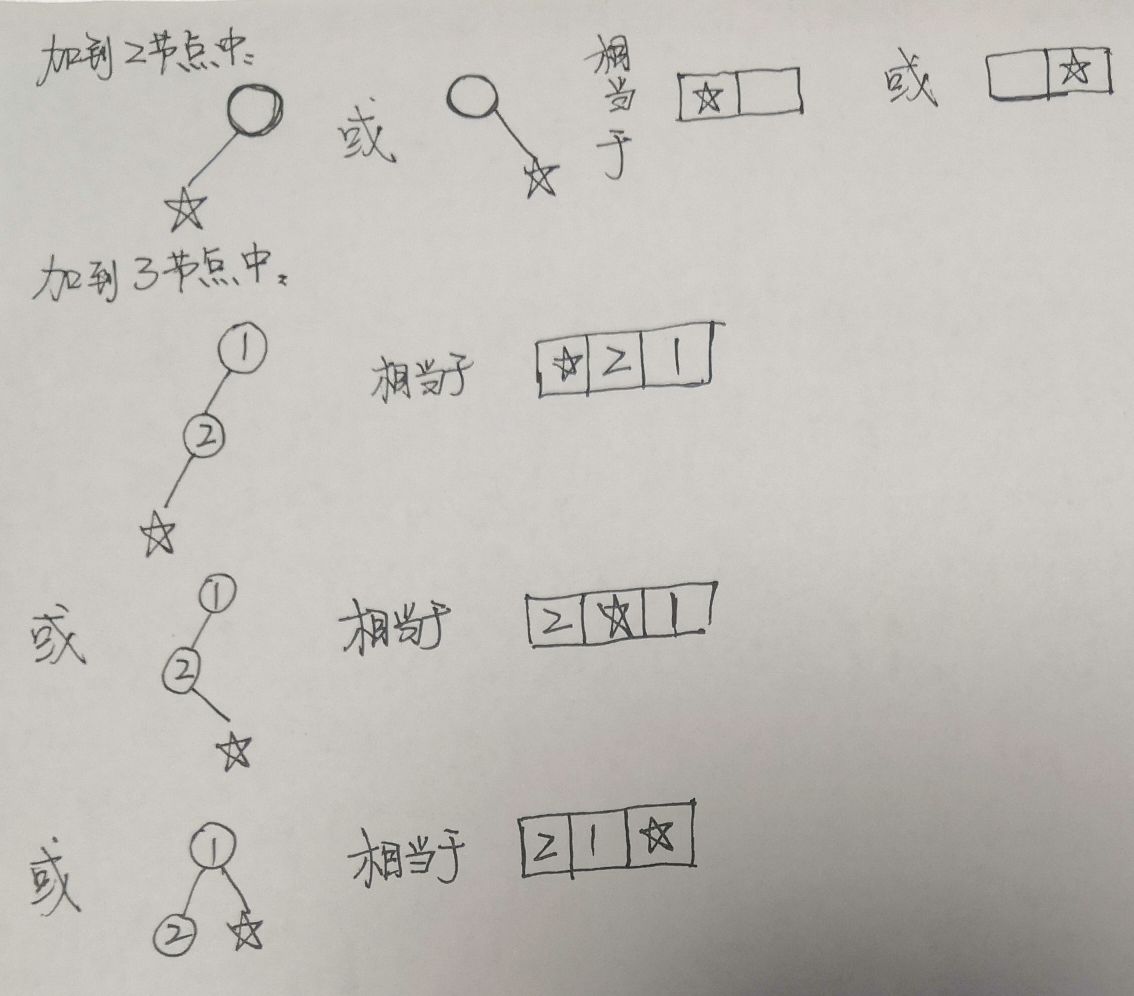 加到2节点中:
或 相当于 ☆ 或 ☆
☆ ☆
加到3节点中:
1
2 相当于 ☆ 2 1
☆
或 1 相当于 2 ☆ 1
2
☆
或 1 相当于 2 1 ☆
2 ☆